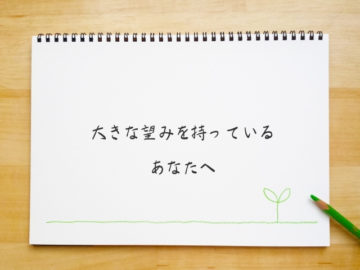 大きな望みを持っている
あなたへ